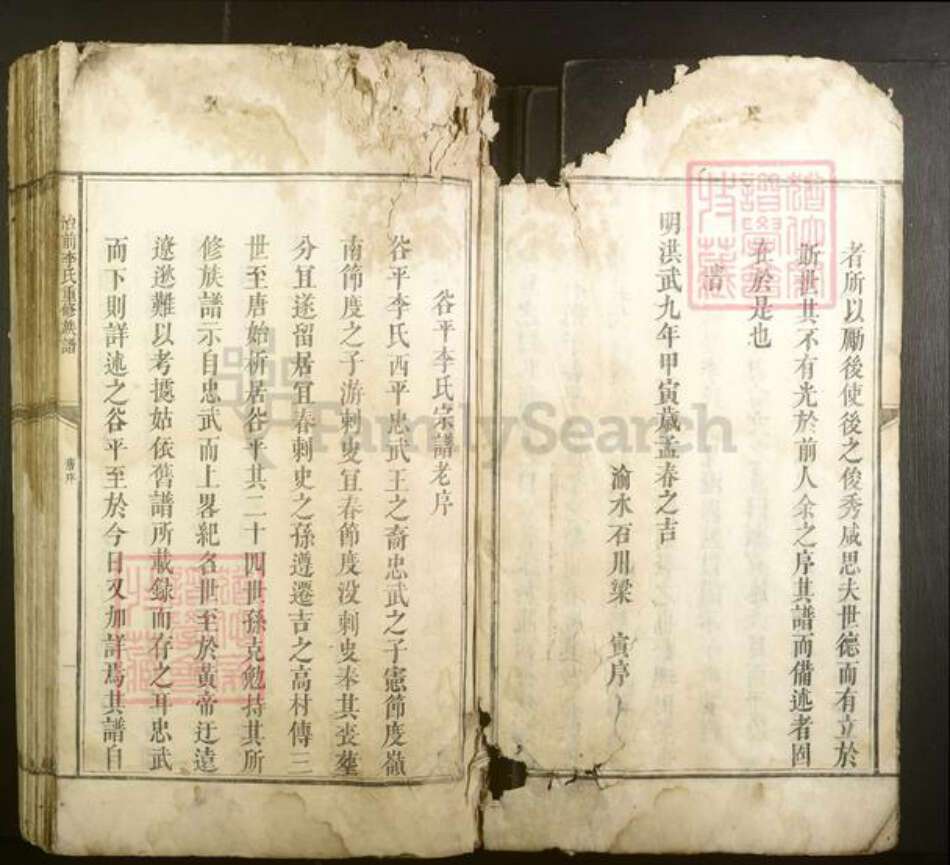 者所以勵後使後之俊秀咸思夫世德而有立於
斯世其不有光於前人余之序其譜而備述者固
在於是也
旹
明洪武九年甲寅歲孟春之吉
渝水石川梁 寅序
谷平李氏宗譜老序
谷平李氏西平忠武王之裔忠武之子憲節度嶺
南節度之子游刺史宜春節度没刺史奉其喪塟
分宜遂留居宜春刺史之孫遵遷吉之高村傳三
世至唐始析居谷平其二十四世孫克勉持其所
修族譜示自忠武而上畧紀名世至於黃帝迂遠
遼邈難以考據姑依舊譜所載録而存之耳忠武
而下則詳述之谷平至於今日又加詳焉其譜自
前李氏重修族譜
舊序
一
FamilySearch